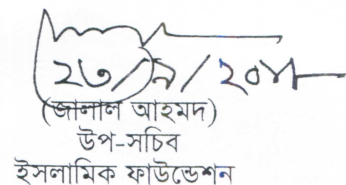 ২৩/৯/২০১৮
(জালাল আহমদ)
উপ-সচিব
ইসলামিক ফাউন্ডেশন